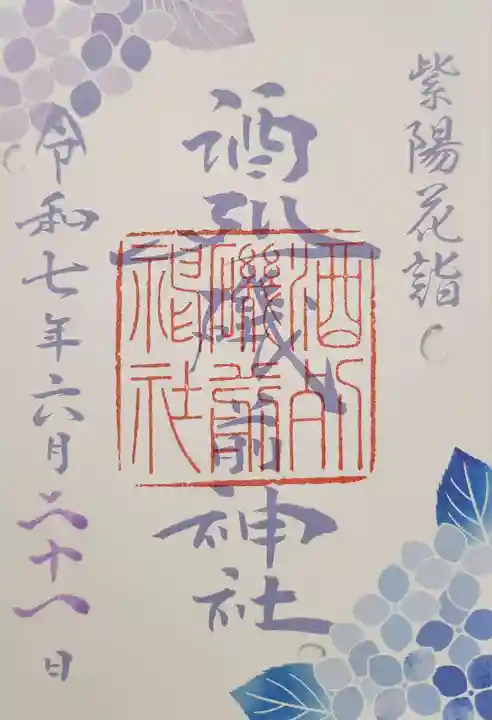 紫陽花詣
酒列磯前神社
酒列
磯前
神社
令和七年六月二十八日